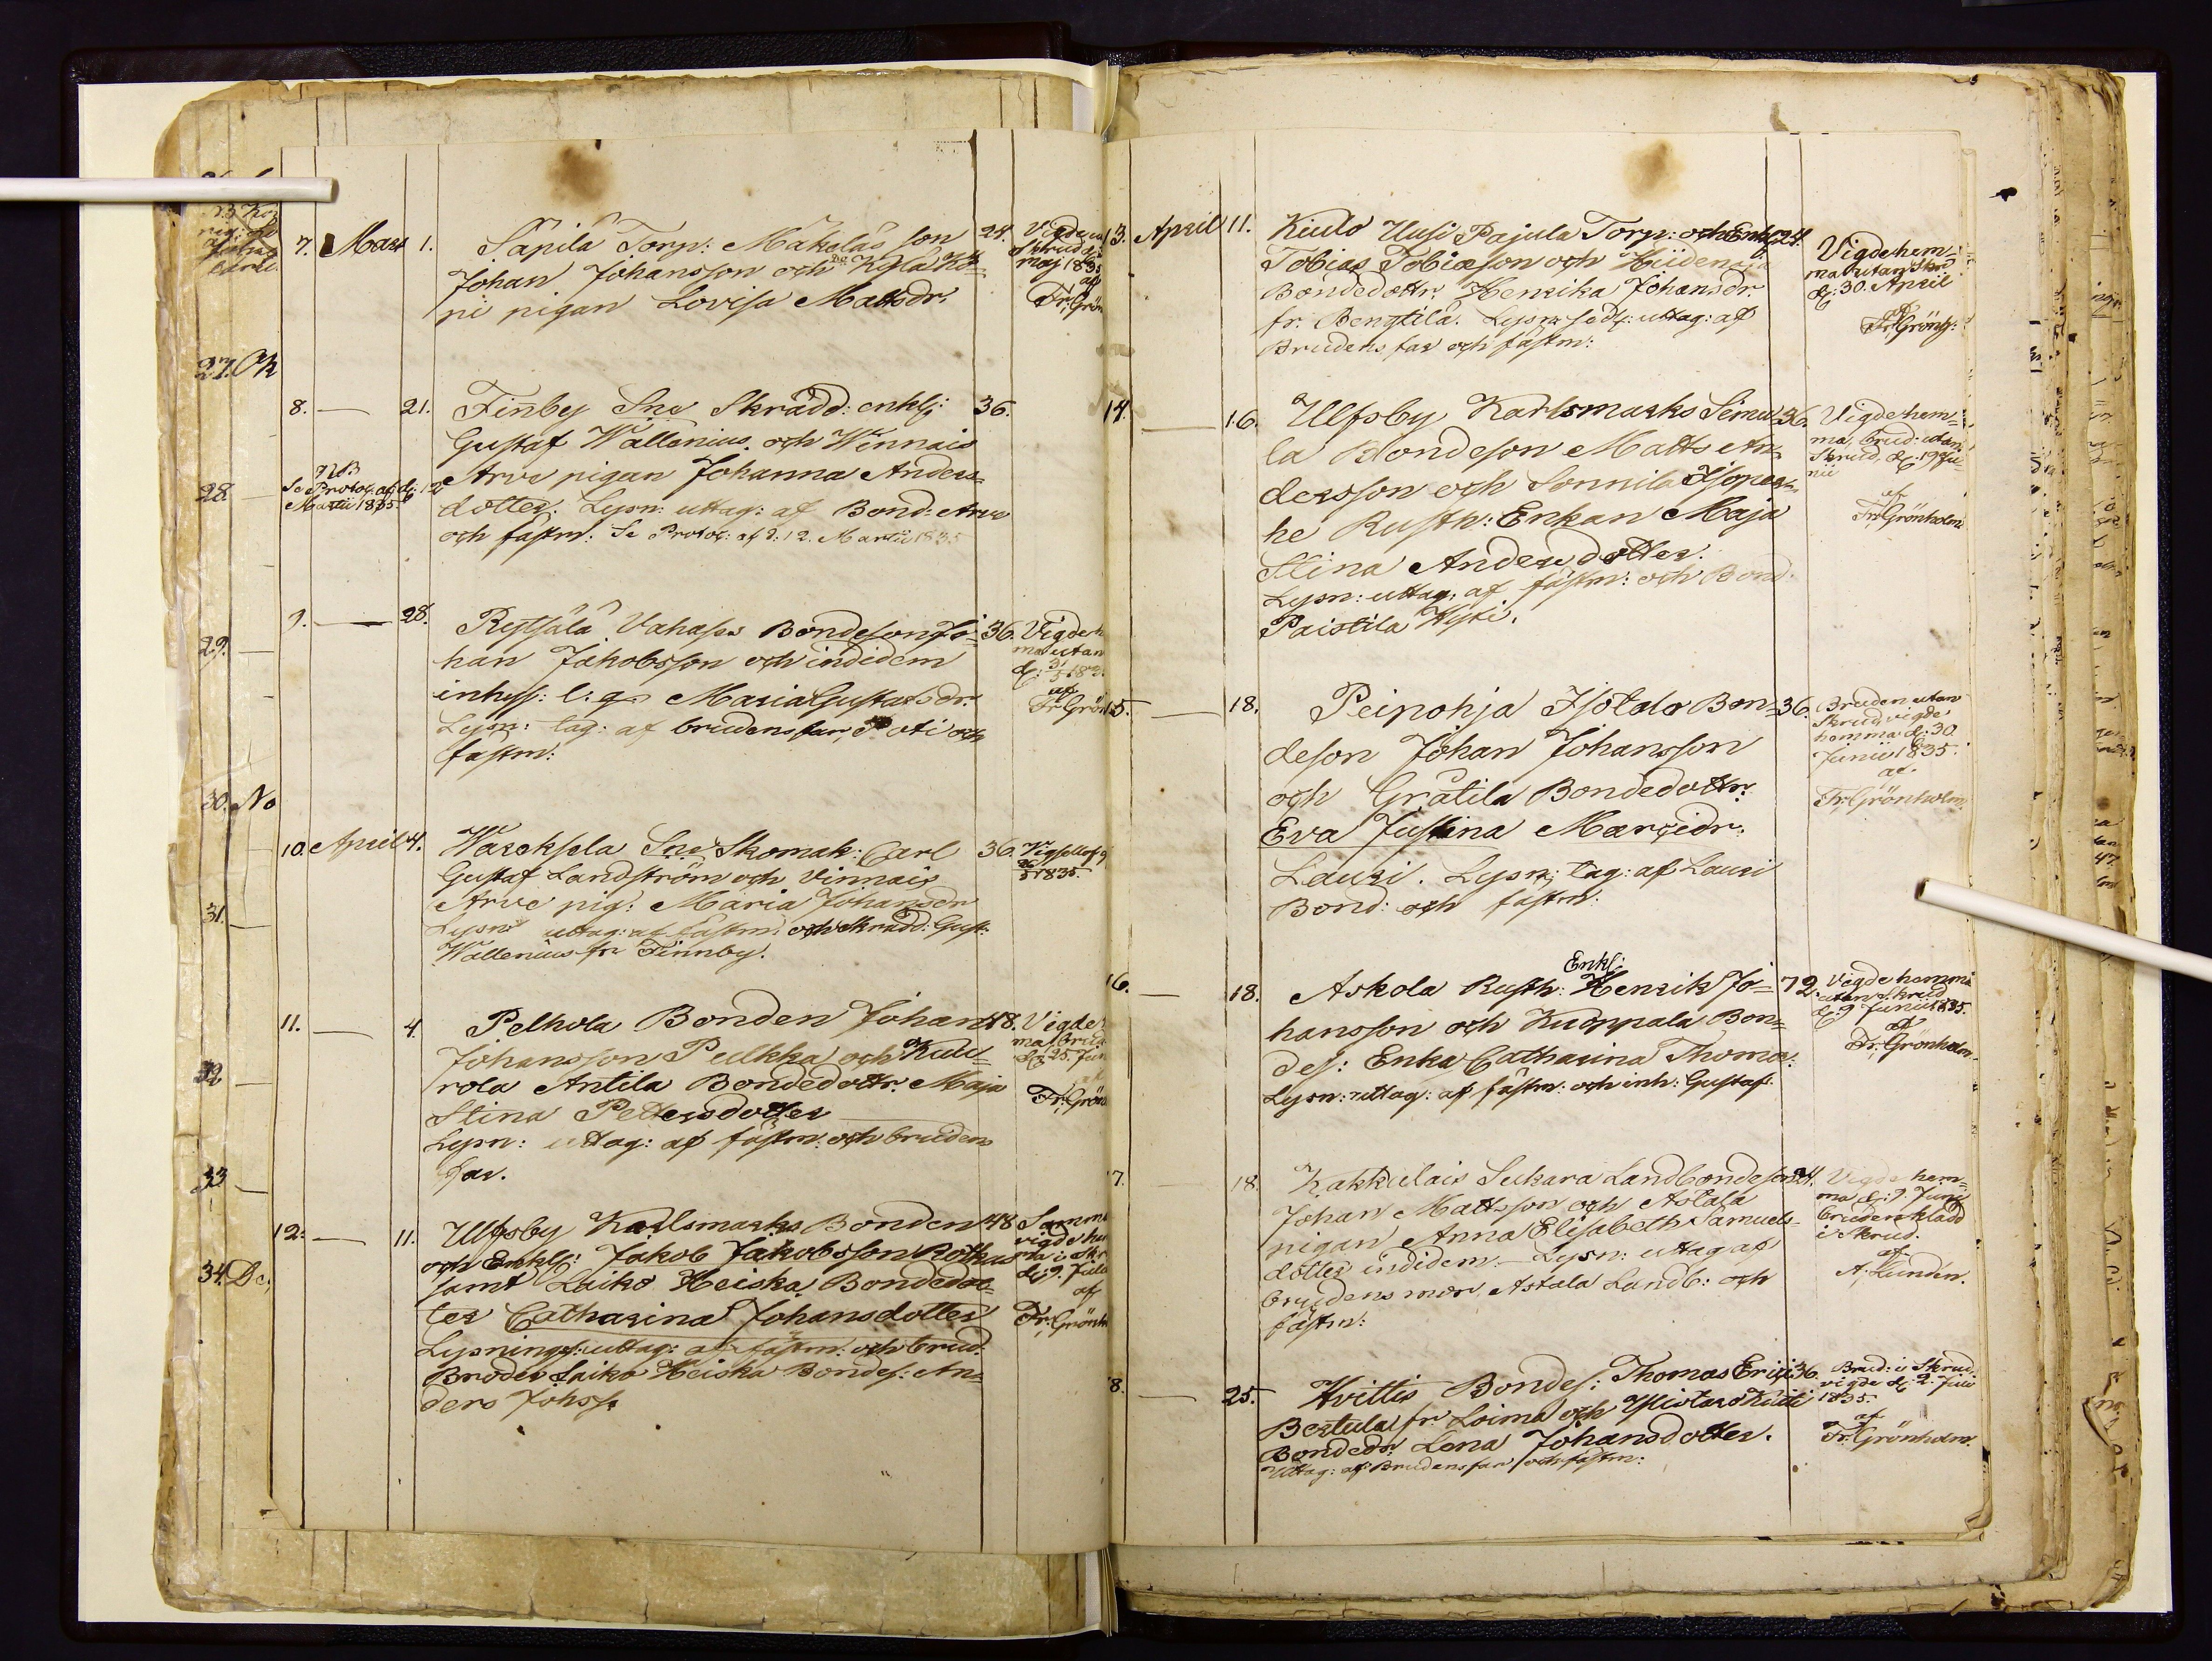 7. Mars 1. Säpilä Torp: Mäkeläs son 24. Vigde
Johan Johansson och Kyla Kö-
pi pigan Lovisa Mattsdr.
maj 1835
af
Fr: Grön
27.
8. — 21. Finby Sne Skrädd: enkl: 36.
Gustaf Wallenius och Winnais
Arve pigan Johanna Anders-
dotter. Lysn: uttag: af Bond: Arve
och fästm: Se Protoc: af d: 12. Martii 1835
NB
Se Protoc: af d: 12
Martii 1835.
28.
9. — 28. Reytsälä Vahass Bondeson Jo- 36. Vigde h
han Jakobsson och indidem
inhys: l: q: Maria Gustafsdr.
Lysn: tag: af brudens far, och
fästm:
ma utan
d: 31/5 183
af
Fr: Grön
29.
30. No
10. April 4. Wareksela Sne Skomak: Carl 36.
Gustaf Landström och Vinnais
Arve pig: Maria Johansdr
Lysn uttag: af fästm: och Skrädd: Gust:
Wallenius fr Finnby.
26/5 1835.
31.
11. — 4. Pelhola Bonden Johan 48. Vigde
Johansson Pulkka och Kuu-
rola Antila Bondedottr. Maja
Stina Pettersdotter
Lysn: uttag: af fästm: och brudens
far.
ma brud
d: 25. Jun
Fr: Grön
32
33
12. — 11. Ulfsby Karlsmarks Bonden 48
och Enkl: Jakob Jakobsson Rothus
samt Laiko Heiska Bondedot-
ter Catharina Johansdotter
Lysnings: uttag: af fästm: och brud.
Broder Laiko Heiska Bondes: An-
ders Johss.
Samma
vigde hem
ma i Skr
d: 9. Juli
af
Fr: Grönh
34. De
13. April 11. Kiulo Uusi Pajula Torp: och Enkl 24.
Tobias Tobiæson och Hiiden
Bondedottr. Henrika Johansdr.
fr. Bengtilä. Lysn: sedl: uttag: af
Brudens far och fästm:
Vigde hem-
ma utan Skr
d: 30. April
af
Fr: Grönh:
14. — 16. Ulfsby Karlsmarks Simu- 36.
la Bondeson Matts An-
dersson och Sonnila Isoper-
he Rusth: Enkan Maja
Stina Andersdotter.
Lysn: uttag: af fästm: och Bond.
Paistila
Vigde hem-
ma, brud: utan
Skrud, d: 19 Ju-
nii
af
Fr: Grönholm
15. — 18. Peipohja Isotalo Bon- 36.
deson Johan Johansson
och Gråtila Bondedottr.
Eva Justina Marcidr.
Lauri. Lysn: tag: af Lauri
Bond: och fästm:
Bruden utan
Skrud vigde
hemma d: 30.
Junii 1835.
af
Fr: Grönholm.
16. — 18. Askola Rusth: Enkl: Henrik Jo- 72.
hansson och Kuoppala Bon-
des: Enka Catharina Thomæ.
Lysn: uttag: af fästm: och inh: Gustaf.
Vigde hemma
utan Skrud
d: 9 Junii 1835.
af
Fr: Grönholm.
17. — 18. Kakkulais Sukara Landbondeson 24.
Johan Mattsson och Astala
pigan Anna Elisabeth Samuels-
dotter indidem. Lysn: uttag af
brudens mor Astala Landb: och
fästm:
Vigde hem-
ma d: 9. Junii
bruden klädd
i Skrud.
af
A. Lundén.
18. — 25. Hvittis Bondes: Thomas Erici 36.
Bertula fr. Loima och
Bondedr Lena Johansdotter.
Uttag: af Brudens far och fästm:
Brud: i Skrud
vigde d: 2. Juli
1835.
af
Fr: Grönholm.